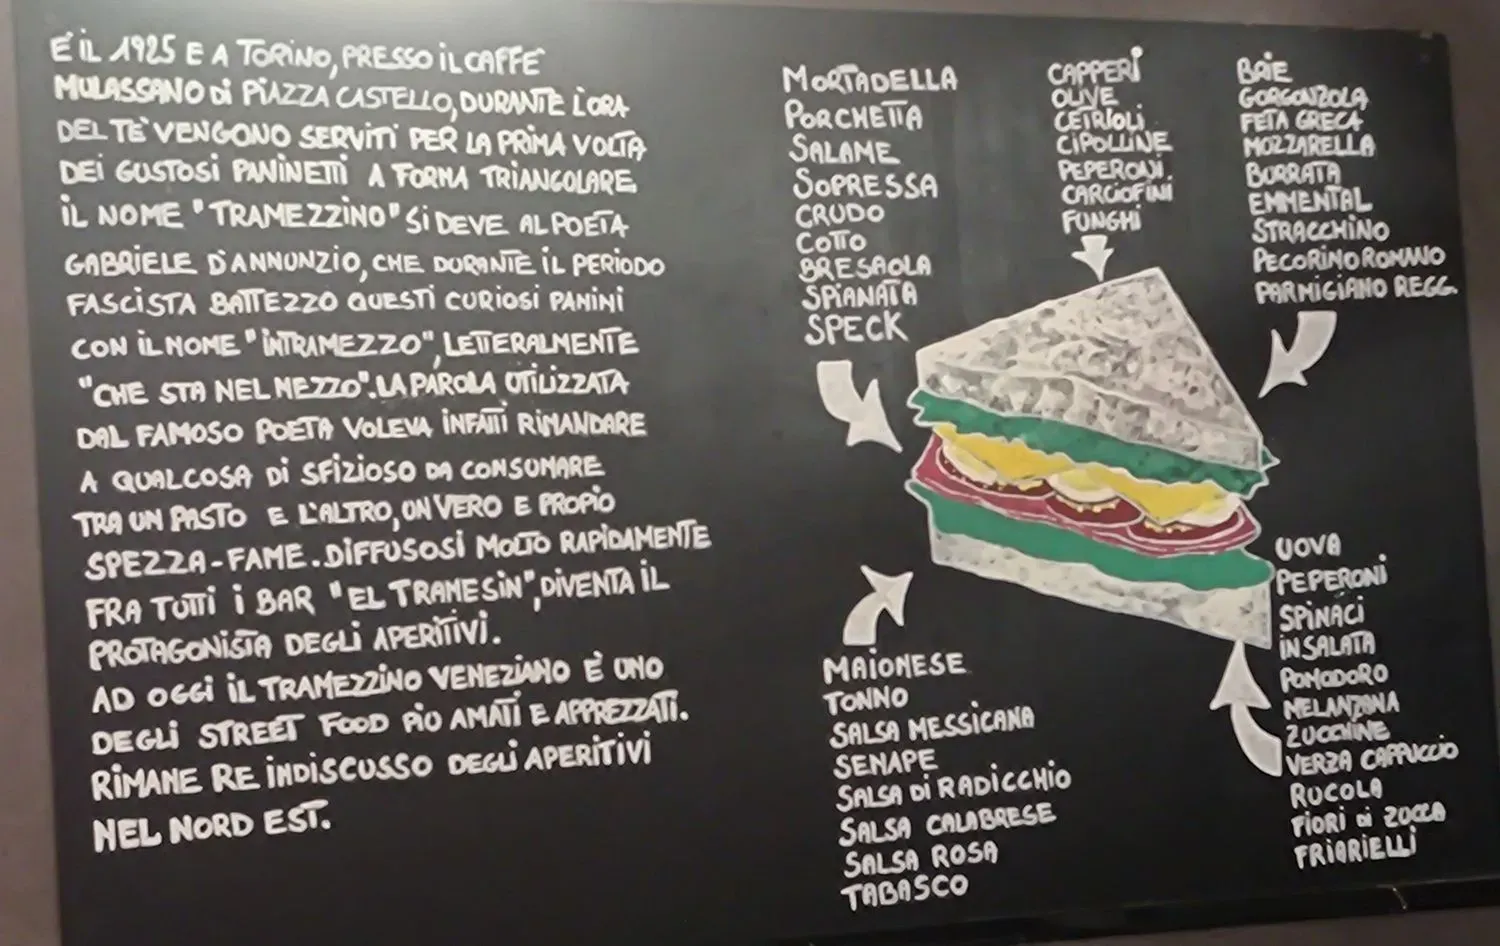 E' IL 1925 E A TORINO, PRESSO IL CAFFE'
MULASSANO DI PIAZZA CASTELLO, DURANTE L'ORA
DEL TE' VENGONO SERVITI PER LA PRIMA VOLTA
DEI GUSTOSI PANINETTI A FORMA TRIANGOLARE
IL NOME "TRAMEZZINO" SI DEVE AL POETA
GABRIELE D'ANNUNZIO, CHE DURANTE IL PERIODO
FASCISTA BATTEZZO QUESTI CURIOSI PANINI
CON IL NOME "INTRAMEZZO", LETTERALMENTE
"CHE STA NEL MEZZO". LA PAROLA UTILIZZATA
DAL FAMOSO POETA VOLEVA INFATTI RIMANDARE
A QUALCOSA DI SFIZIOSO DA CONSUMARE
TRA UN PASTO E L'ALTRO, UN VERO E PROPIO
SPEZZA-FAME. DIFFUSOSI MOLTO RAPIDAMENTE
FRA TUTTI I BAR "EL TRAMESIN", DIVENTA IL
PROTAGONISTA DEGLI APERITIVI.
AD OGGI IL TRAMEZZINO VENEZIANO E' UNO
DEGLI STREET FOOD PIU AMATI E APPREZZATI.
RIMANE RE INDISCUSSO DEGLI APERITIVI
NEL NORD EST.
MORTADELLA
PORCHETTA
SALAME
SOPRESSA
CRUDO
COTTO
BRESAOLA
SPIANATA
SPECK
CAPPERI
OLIVE
CETRIOLI
CIPOLLINE
PEPERONI
CARCIOFINI
FUNGHI
BRIE
GORGONZOLA
FETA GRECA
MOZZARELLA
BURRATA
EMMENTAL
STRACCHINO
PECORINO ROMANO
PARMIGIANO REGG.
MAIONESE
TONNO
SALSA MESSICANA
SENAPE
SALSA DI RADICCHIO
SALSA CALABRESE
SALSA ROSA
TABASCO
UOVA
PEPERONI
SPINACI
INSALATA
POMODORO
MELANZANA
ZUCCHINE
VERZA CAPPUCCIO
RUCOLA
FIORI DI ZUCCA
FRIARIELLI